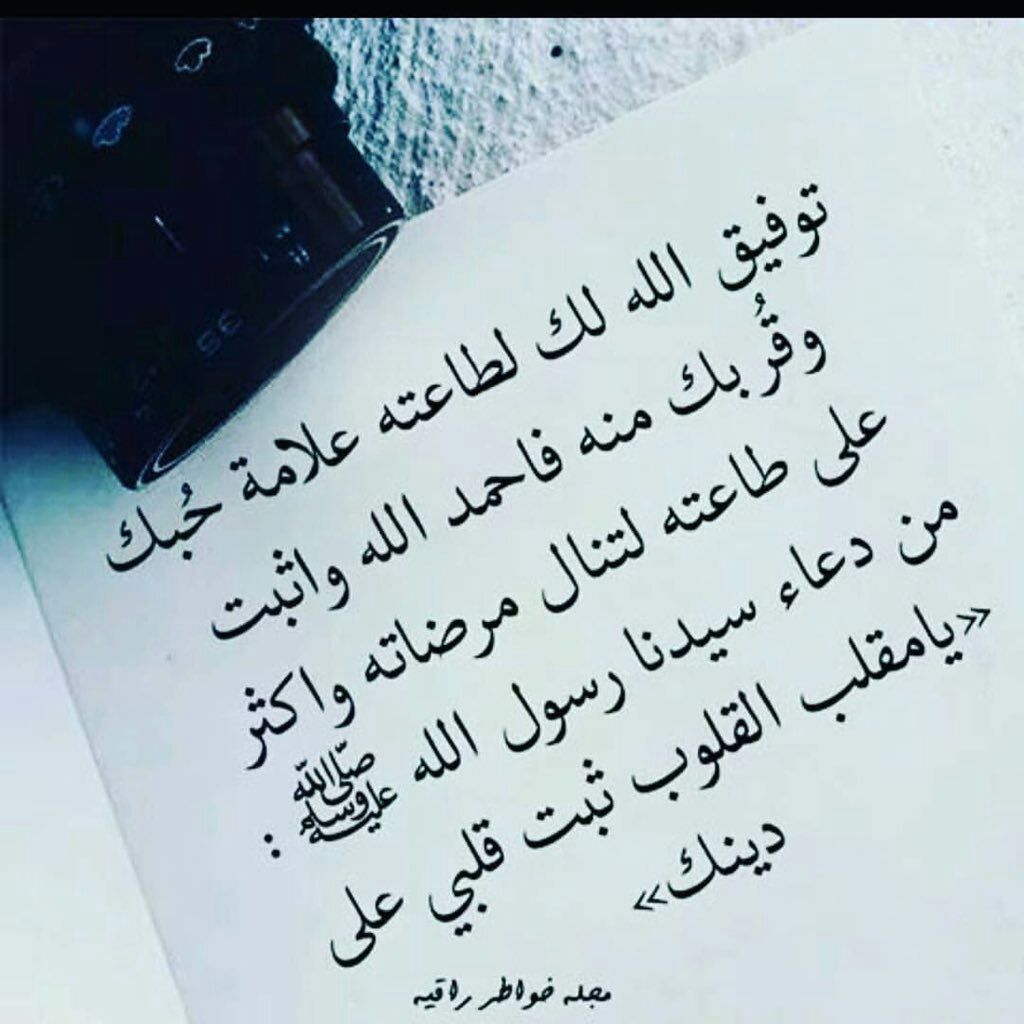 توفيق الله لك لطاعته علامة حُبك
وقُربك منه فاحمد الله واثبت
على طاعته لتنال مرضاته واكثر
من دعاء سيدنا رسول الله ﷺ :
«يامقلب القلوب ثبت قلبي على
دينك»
مجله خواطر راقيه